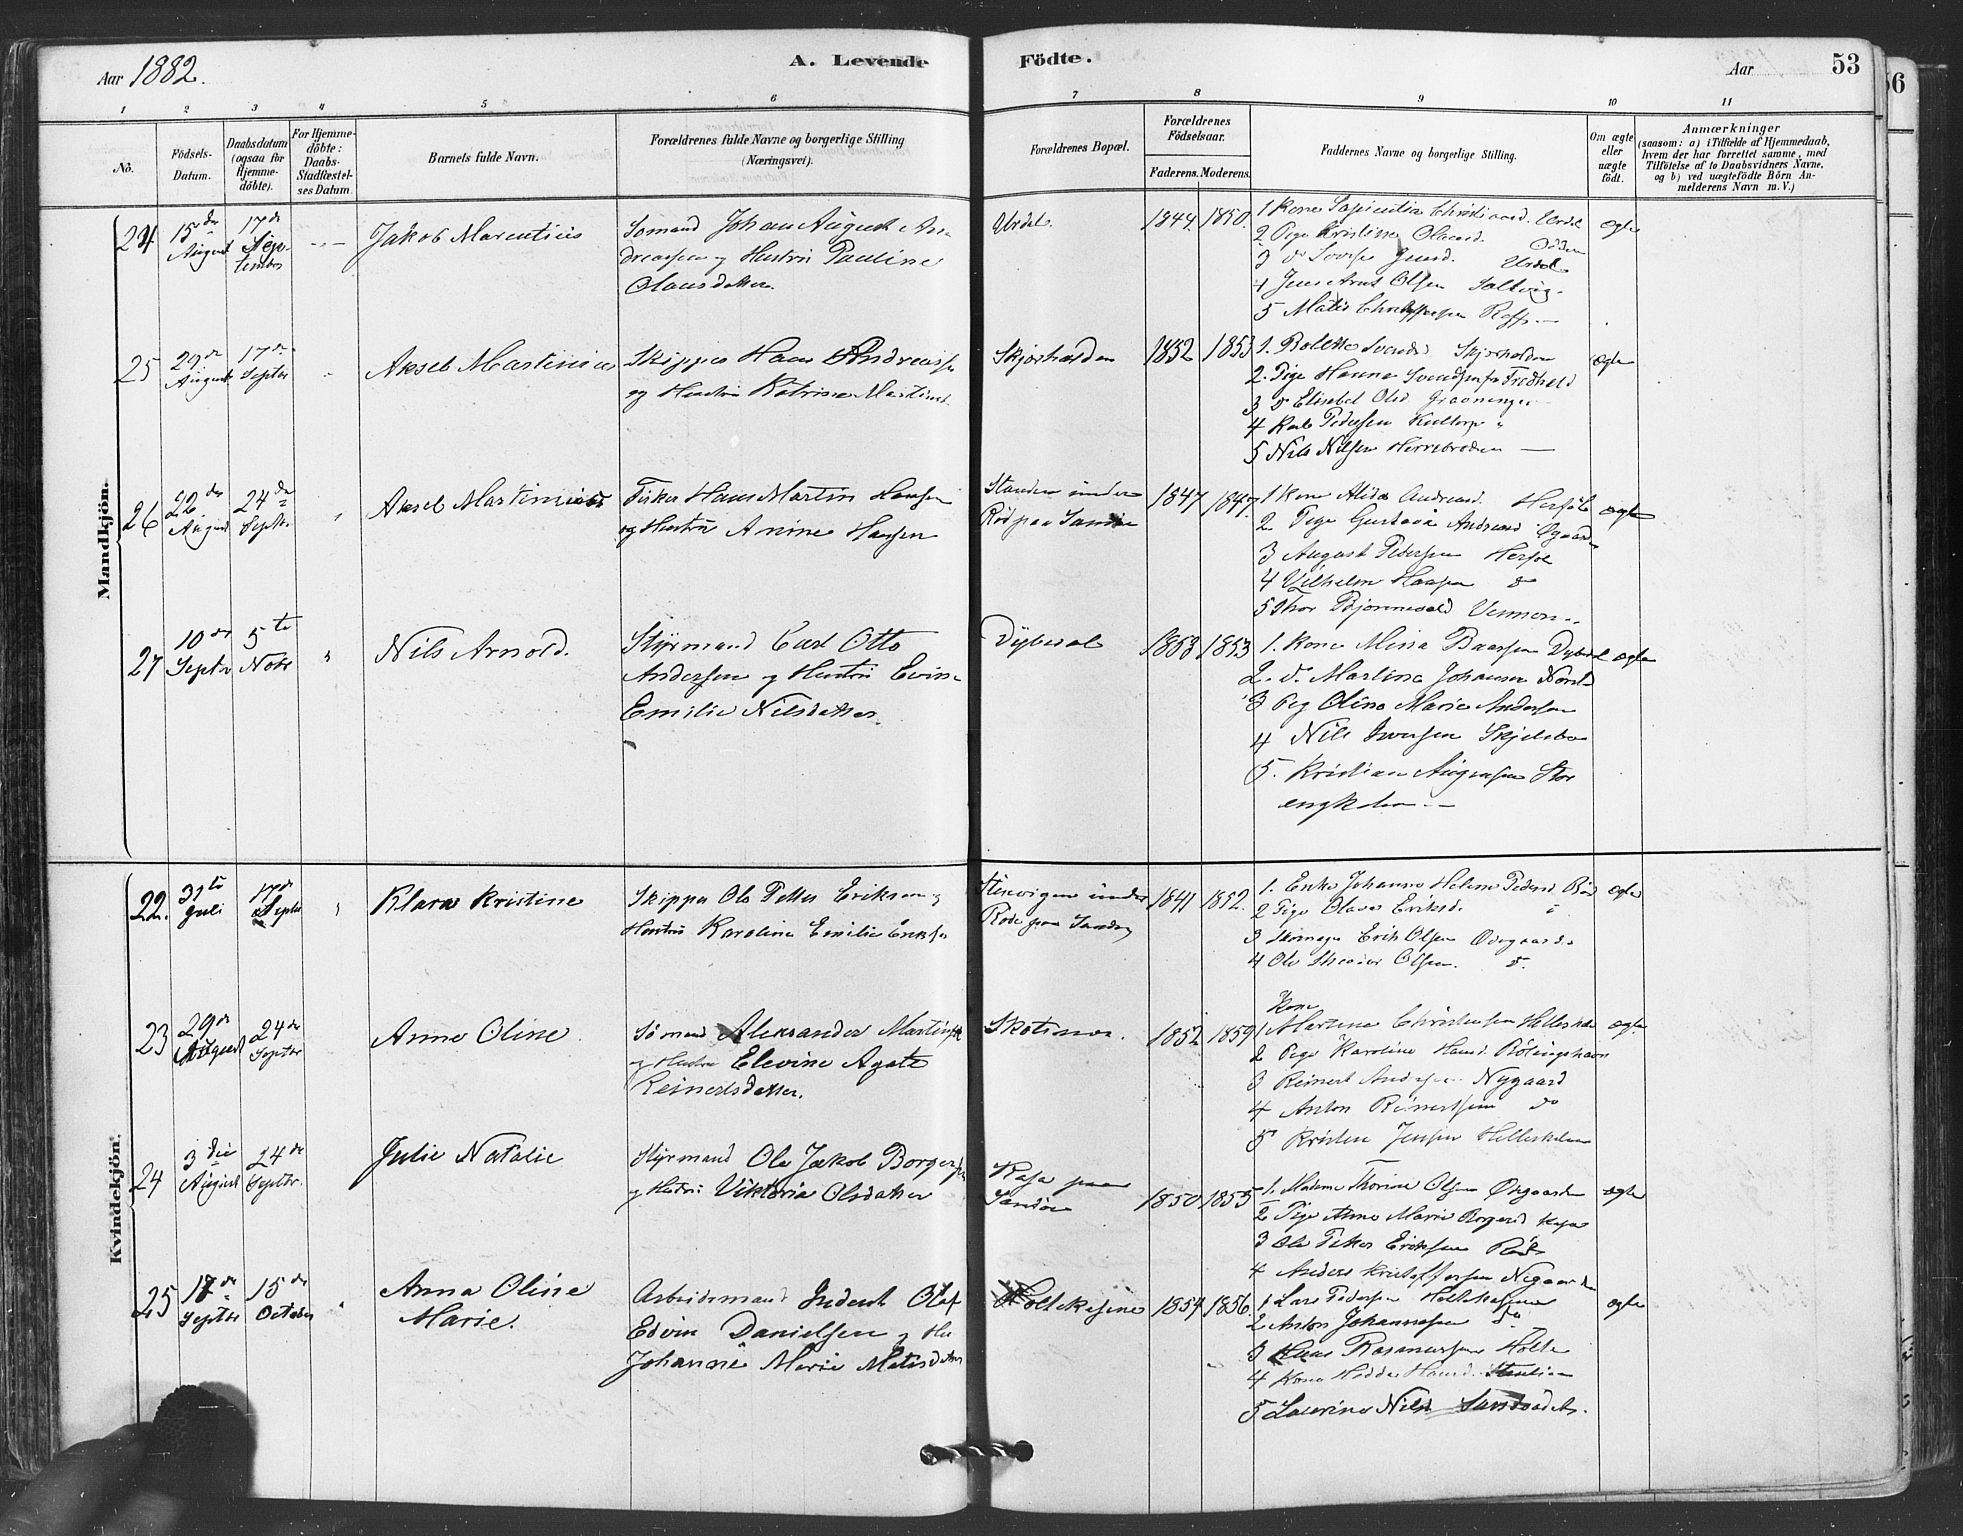 Aar 1882.
A. Levende Födte.
Aar
53
1 2 3 4 5 6 7 8 9 10 11
No.
Födsels-Datum.
Daabsdatum (ogsaa for Hjemme-döbte).
For Hjemme-döbte: Daabs-Stadfæstel-ses Datum.
Barnets fulde Navn.
Forældrenes fulde Navne og borgerlige Stilling (Næringsvei).
Forældrenes Bopæl.
Forældrenes Födselsaar.
Faderens. Moderens.
Faddernes Navne og borgerlige Stilling.
Om ægte eller uægte födt.
Anmærkninger
(saasom: a) i Tilfælde af Hjemmedaab, hvem der har forrettet samme, med Tilföielse af to Daabsvidners Navne, og b) ved uægtefödte Börn Anmelderens Navn m. V.)
Mandkjön.
24 15de August 17de September Jakob Marentius
Sömand Johan August Andreassen og Hustru Pauline Olausdatter
Urdal. 1844 1850.
1 Kone Christiansd. Urdal
2 Pige Kristine Olausd.
3 do Jensd. Urdal
4 Jens Arnt Olsen
5 Christoffersen
ægte
25 29de August 17de Septbr Aksel Martinius
Skipper Hans Andreassen
og Hustru Katrine Martinsd.
Skjærhalden 1852 1853
1. Bolette Svendsd Skjærhalden
2. Pige Hanna Svendsen fr Fredhald
3 do Elisabet Olsd Graaninge
4 Karl Pedersen
5 Nils Nilsen Herrebröden
ægte
26 22de August 24de Septbr Aksel Martinius
Fisker Hans Martin Hansen
og Hustru Anine Hansen
Standen under Röd paa Sandö 1847 1847.
1 Kone Alida Andreasd. Herföl
2 Pige Gustava Andreasd Ögaarden
3 August Pedersen Herföl
4 Vilhelm Hansen do
5 Thor
ægte
27 10de Septbr 5te Nobr Nils Arnold.
Styrmand Carl Otto
Andersen og Hustru Evine
Emilie Nilsdatter.
Dybedal 1853 1853
1. Kone Mina Dybedal
2. do. Martine Johansen
3 Pig Oline Marie Andersen
4 Nils Iversen Skjelsbo
5. Kristian Storengkilen
ægte
Kvindekjön.
22. 31te Juli 17de Septbr Klara Kristine
Skipper Ole Petter Eriksen og
Hustru Karoline Emilie Eriksen
Stenvigen under Röd paa Sandö 1841 1852.
1. Enke Johanne Helene Pedersd. Röd
2 Pige Olava Eriksd.
3 Erik Olsen Ödegaarden
4 Ole Theodor Olsen. do.
ægte
23 29de August 24de Septbr Anne Oline
Sömand Aleksander Martinsen
og Hustru Elevine Agate
Reinertsdatter.
1852 1859
1 Kone Martine Christensen Hellekilen
2 Pige Karoline Hansd. Rölingshavn
3 Reinert Andersen Nygaard
4 Anton Reinertsen do
5 Kristen Jensen Hellekilen
ægte
24 3die August 24de Septbr. Julie Natalie
Styrmand Ole Jakob Borgersen
og Hustru Viktoria Olsdatter
Kasa paa Sandö 1850 1855
1. Madame Thorine Olsen Ödegaarden
2 Pige Anne Marie Borgersd Kasa
3 Ole Petter Eriksen Röd
4 Anders Kristoffersen Nygaarden
ægte
25 17de Septbr 15de October Anna Oline
Marie.
Arbeidsmand Inderst Olaf
Edvin Danielsen og Hu
Johanne Marie Matisdatter
Holtekjærne 1854 1856.
1 Lars Pedersen Holtekjærne
2 Anton Johannesen do
3 Klaus Rasmussen Holte
4 Kone Hedda Hansd.
5 Laurine Nilsd
ægte